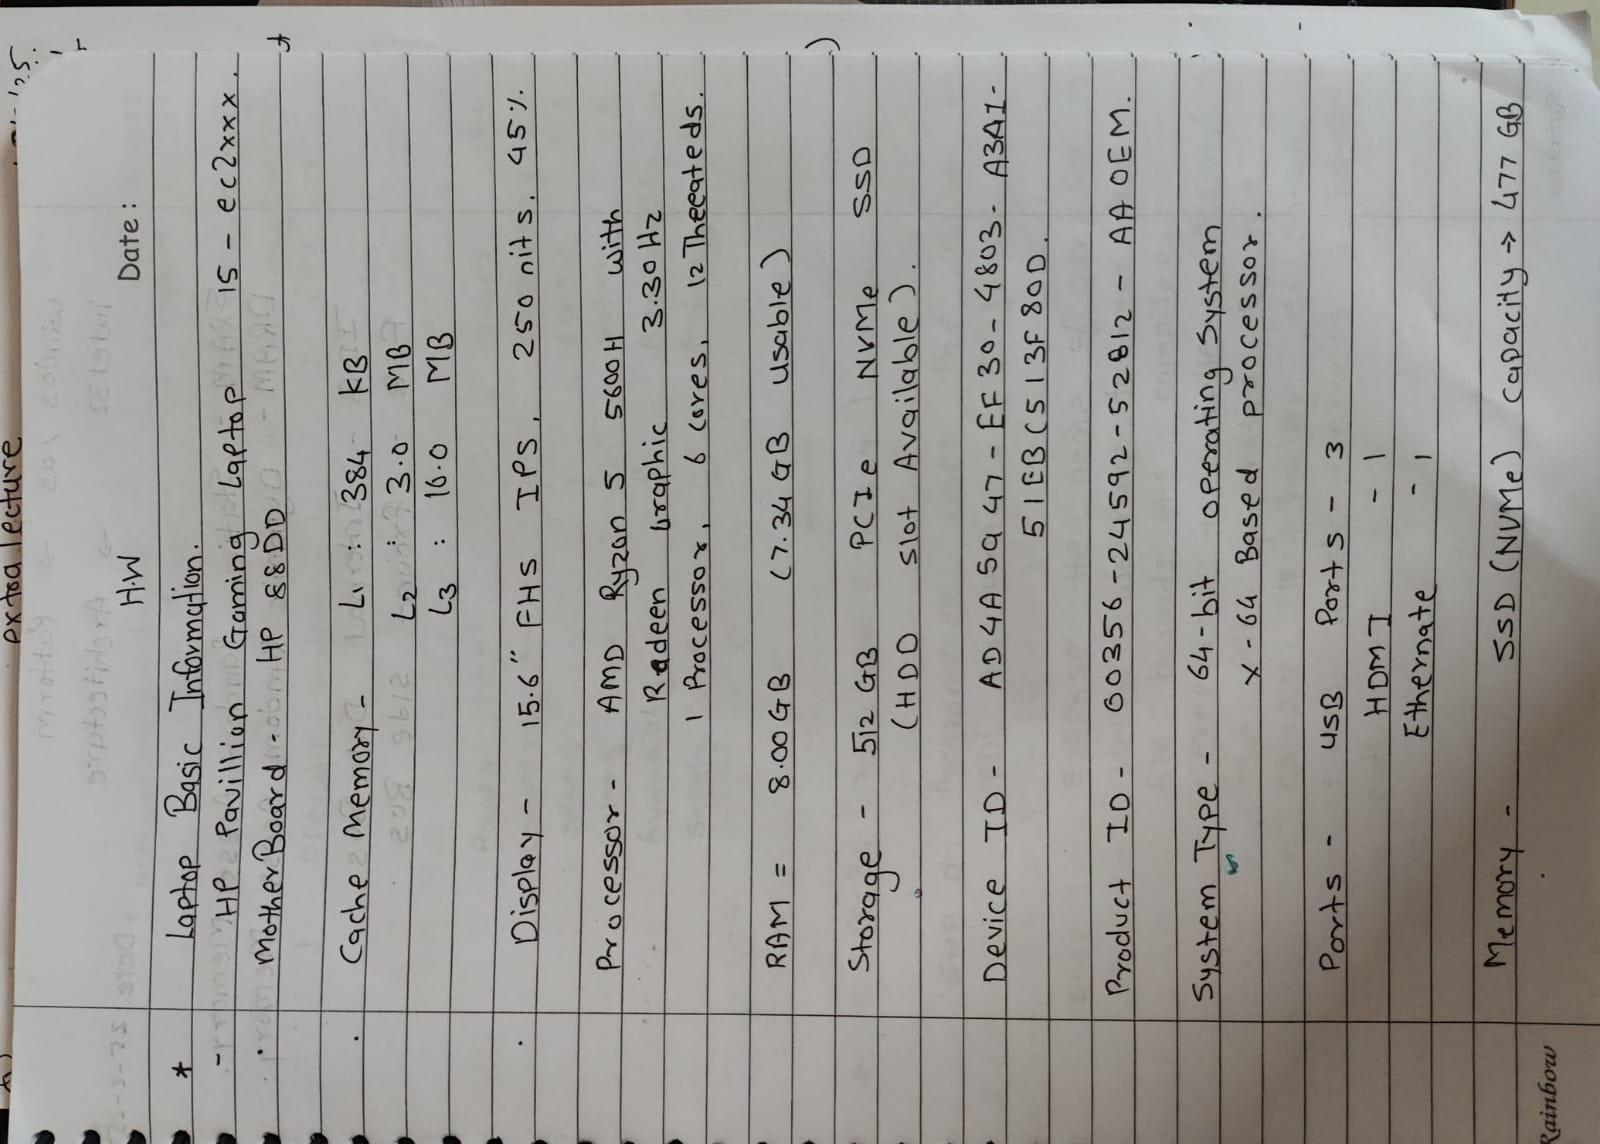 extra lecture
H.W
Date:
* Laptop Basic Information.
- HP Pavillion Gaming Laptop 15 - ec2xxx.
. MotherBoard - HP 88DD
. Cache Memory - L1: 384 KB
L2: 3.0 MB
L3: 16.0 MB
. Display - 15.6" FHS IPS, 250 nits, 45%
Processor - AMD Ryzon 5 5600H with
Radeen Graphic 3.30 Hz
1 Processor, 6 Cores, 12 Theeateds.
RAM = 8.00 GB (7.34 GB usable)
Storage - 512 GB PCIe NVMe SSD
(HDD slot Available).
Device ID - AD4A5947-EF30-4803-A3A1-
51EBC513F80D.
Product ID - 00356-24592-52812-AAOEM.
System Type - 64-bit operating System
x-64 Based processor.
Ports - USB Ports - 3
HDMI - 1
Ethernate - 1
Memory - SSD (NVMe) Capacity → 477 GB
Rainbow